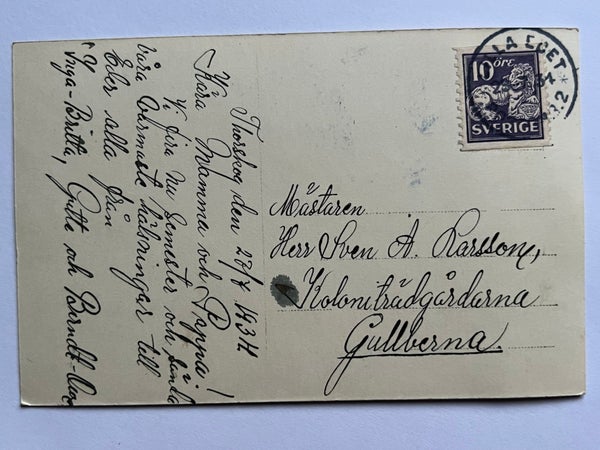 Thorskog den 27/7 1934
Kära Mamma och Pappa!
Vi fira nu Semester och sända
våra varmaste hälsningar till
Eder alla från
Inga-Britta, Gutte och Berndt-Ove
LA EGET
34
10 ÖRE
SVERIGE
Mästaren
Herr Sven A. Larsson,
Koloniträdgårdarna
Gullberna.